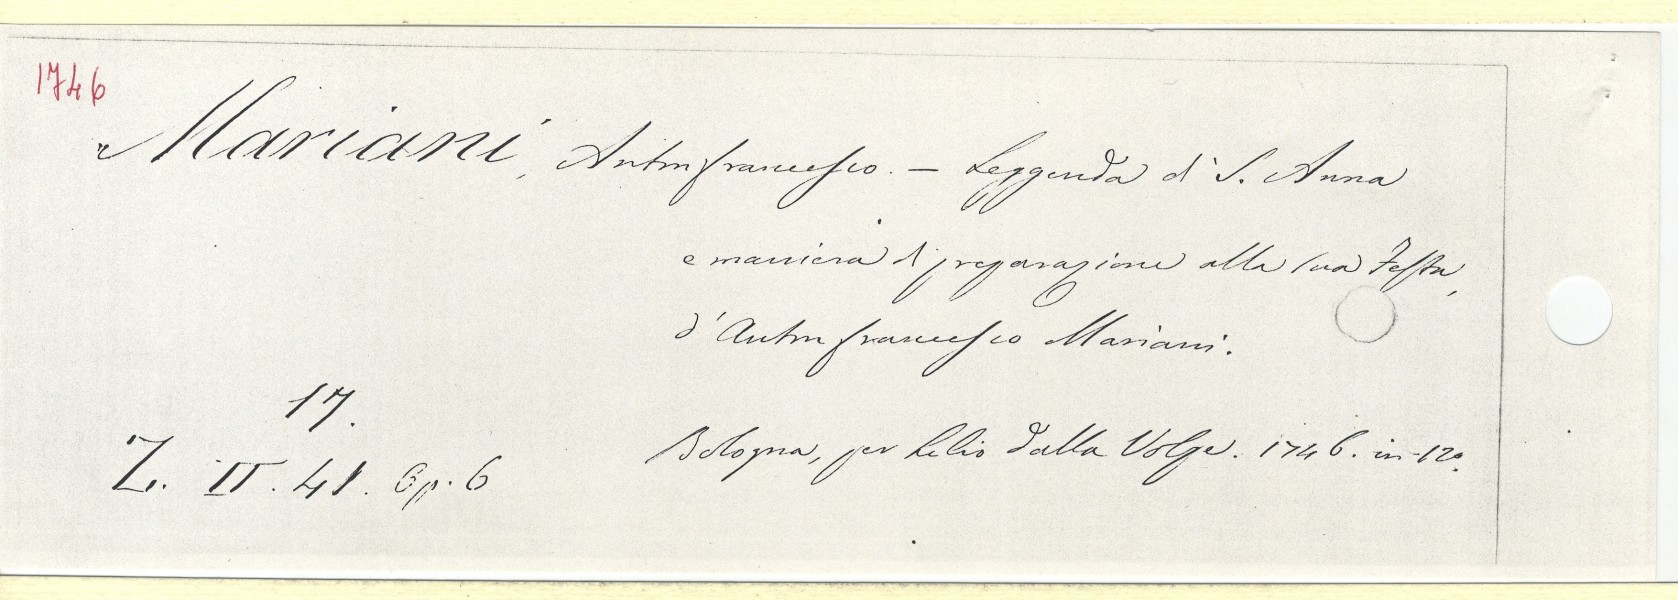 1746
Mariani, Antonfrancesco. — Leggenda di S. Anna
e maniera di preparazione alla sua Festa,
d'Antonfrancesco Mariani.
17.
Bologna, per Lelio dalla Volpe. 1746. in-12º.
Z. II. 41. Op. 6